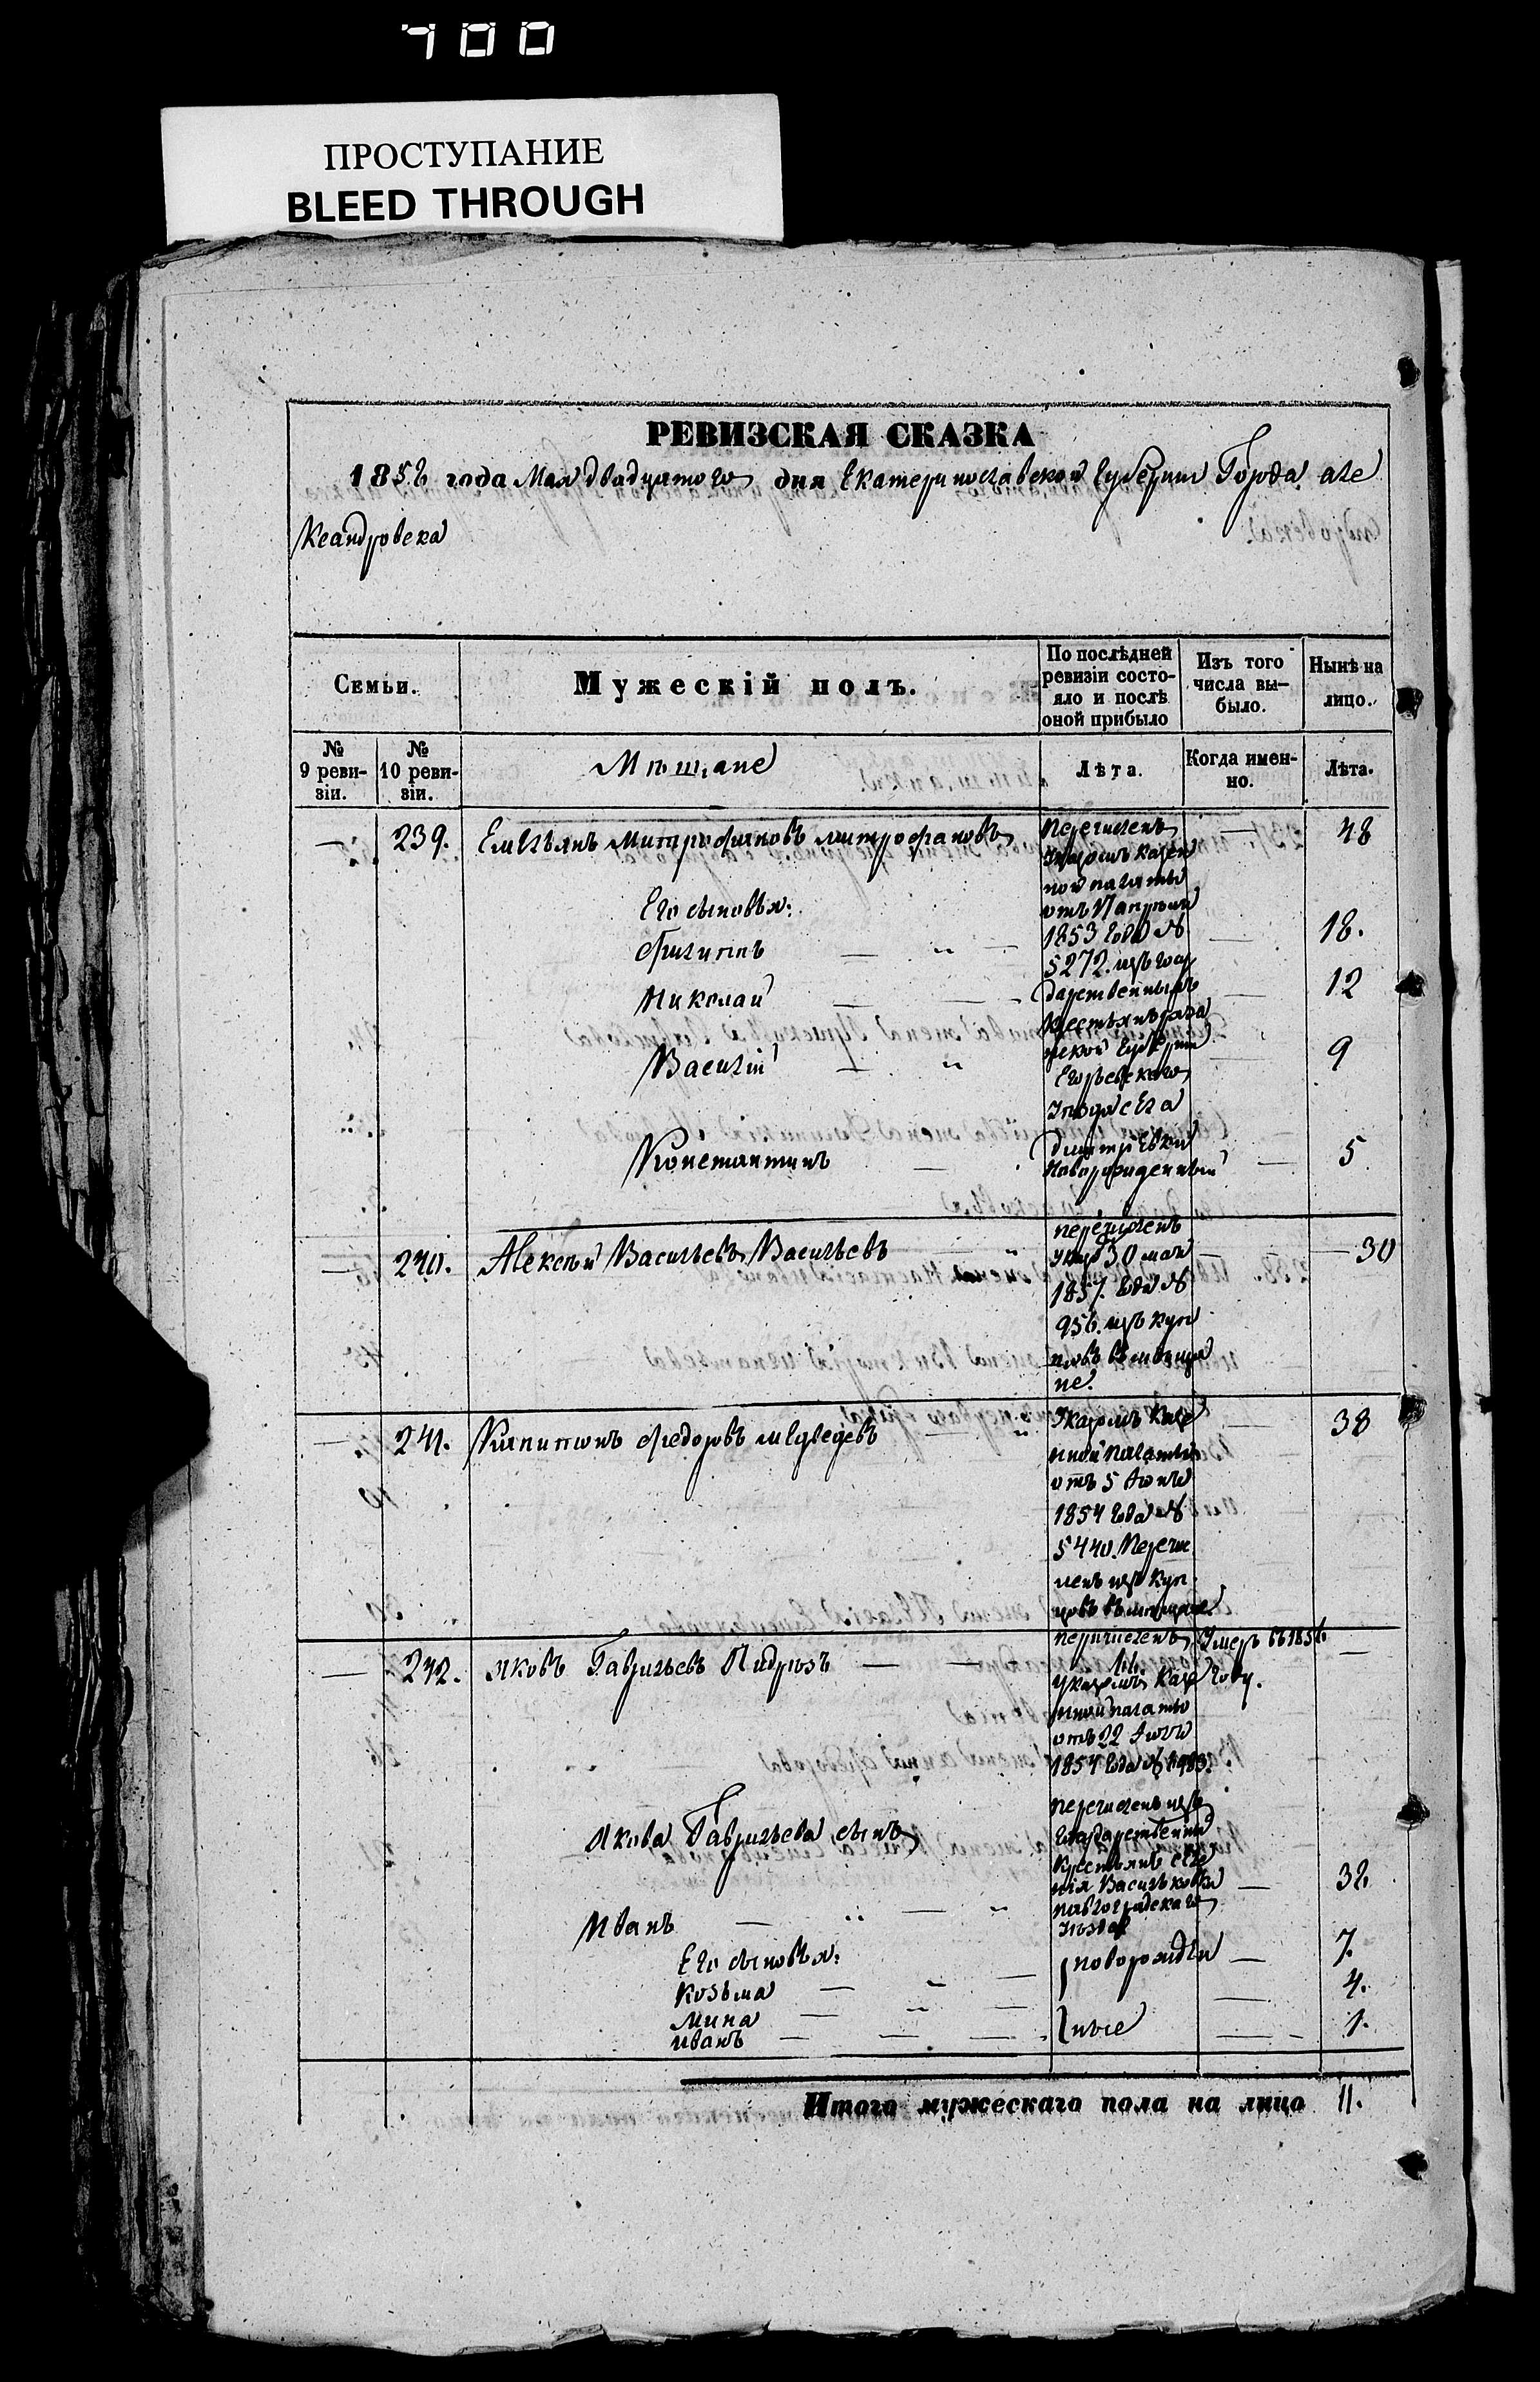 700
ПРОСТУПАНИЕ
BLEED THROUGH
РЕВИЗСКАЯ СКАЗКА
1858 года Мая двадцатого дня Екатеринославской Губернии Города Але
ксандровска
Семьи.
Мужескій полъ.
По послѣдней ревизіи состо-
яло и послѣ оной прибыло
Изъ того числа вы-
было.
Нынѣ на лицо.
№ 9 реви-
зіи.
№ 10 реви-
зіи.
Мѣщане
Лѣта.
Когда имен-
но.
Лѣта.
— 239. Емельянъ Митрофановъ Митрофановъ — 48
Перечисленъ
Указомъ Казен
ной палаты
отъ
1853 года №
5272. изъ госу
дарственныхъ
Крестьянъ
ской Губерніи
Егорьевскаго
Уѣзда села
Дмитріевки
Его сыновья:
Филиппъ — " — — 18.
Николай — — — 12
Василій — " — 9
Константинъ — Новорожденный — 5
— 240. Алексѣй Васильевъ Васильевъ " — — 30
перечисленъ
Указ 30 мая
1857. года №
956. изъ куп
цовъ въ мѣща
не.
— 241. Капитонъ Федоровъ Медведевъ — " — 38
Указомъ Казе
нной Палаты
отъ 5 Июня
1854 года №
5440. Перечис
ленъ изъ Куп
цовъ въ мѣщане.
— 242. Яковъ Гавриловъ — — —
перечисленъ
указомъ Казе
нной палаты
отъ 22
1854 года №
Умеръ въ 1856
году.
перечисленъ изъ
Государственны
Крестьянъ селе
нія Васильковки
павлоградскаго
Уѣзда
Якова Гаврильева сынъ
Иванъ — " — " — 32
Его сыновья:
Козьма — " — новорожден — 7.
Мина — " — — 4.
Иванъ — — — ные — 1.
Итого мужескаго пола на лицо 11.